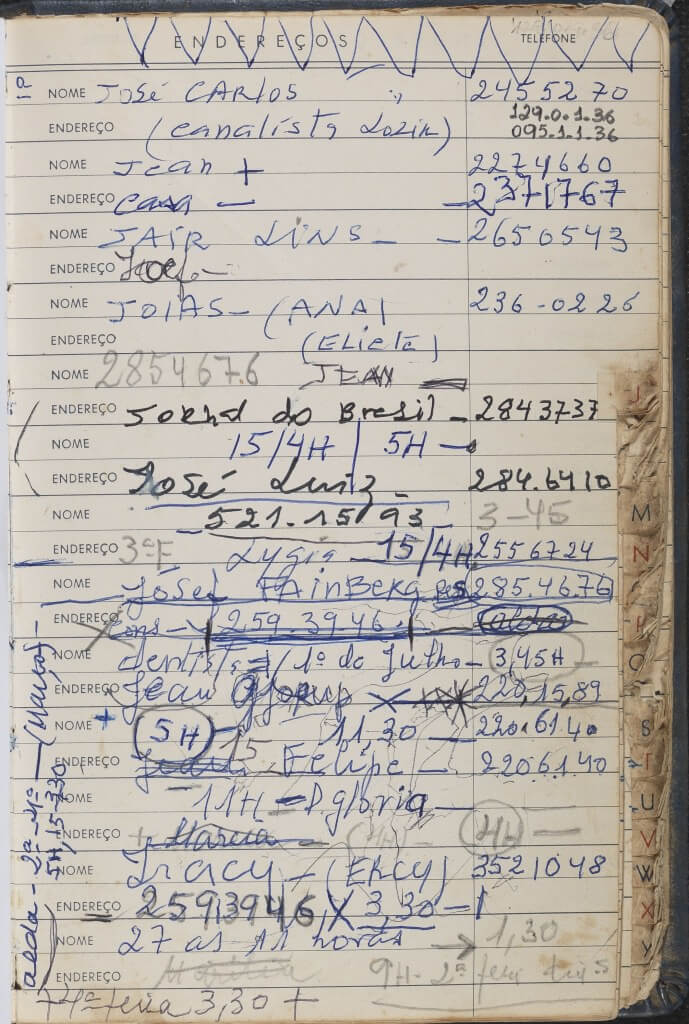 ENDEREÇOS TELEFONE
NOME JOSÉ CARLOS 2455270
ENDEREÇO (canalista Lozin) 129.0.1.36
095.1.1.36
NOME Jean + 2274660
ENDEREÇO casa — 2371767
NOME JAIR LINS — 2650543
ENDEREÇO
NOME JOIAS - (ANA) 236-0226
ENDEREÇO (Eliete)
NOME 2854676 JEAN
ENDEREÇO Jornal do Brasil - 2843737
NOME 15/4H | 5H -
ENDEREÇO José Luiz - 284.6410
NOME - 521-1593 3-45
ENDEREÇO 3ªF Lygia - 15/4H 2556724
NOME Jósef FAINBERG 285.4676
ENDEREÇO Cons - 259.39.46
NOME dentista 1º de Julho - 3,45H
ENDEREÇO Jean 220,15,89
NOME 5H - 15 11,30 - 220.61.40
ENDEREÇO Felipe - 2206140
NOME 11H - D. gloria -
ENDEREÇO + Marcia (4H) - 4H -
NOME Iracy - (ERCY) 3521048
ENDEREÇO = 25913946 X 3,30 -
NOME 27 as 11 horas → 1,30
ENDEREÇO 9H - 2ª
+ 4ª feira 3,30 +
alda - 2ª - 4ª - (Março) -
5H,15-330
J
M
N
O
S
T
U
V
W
X
Y